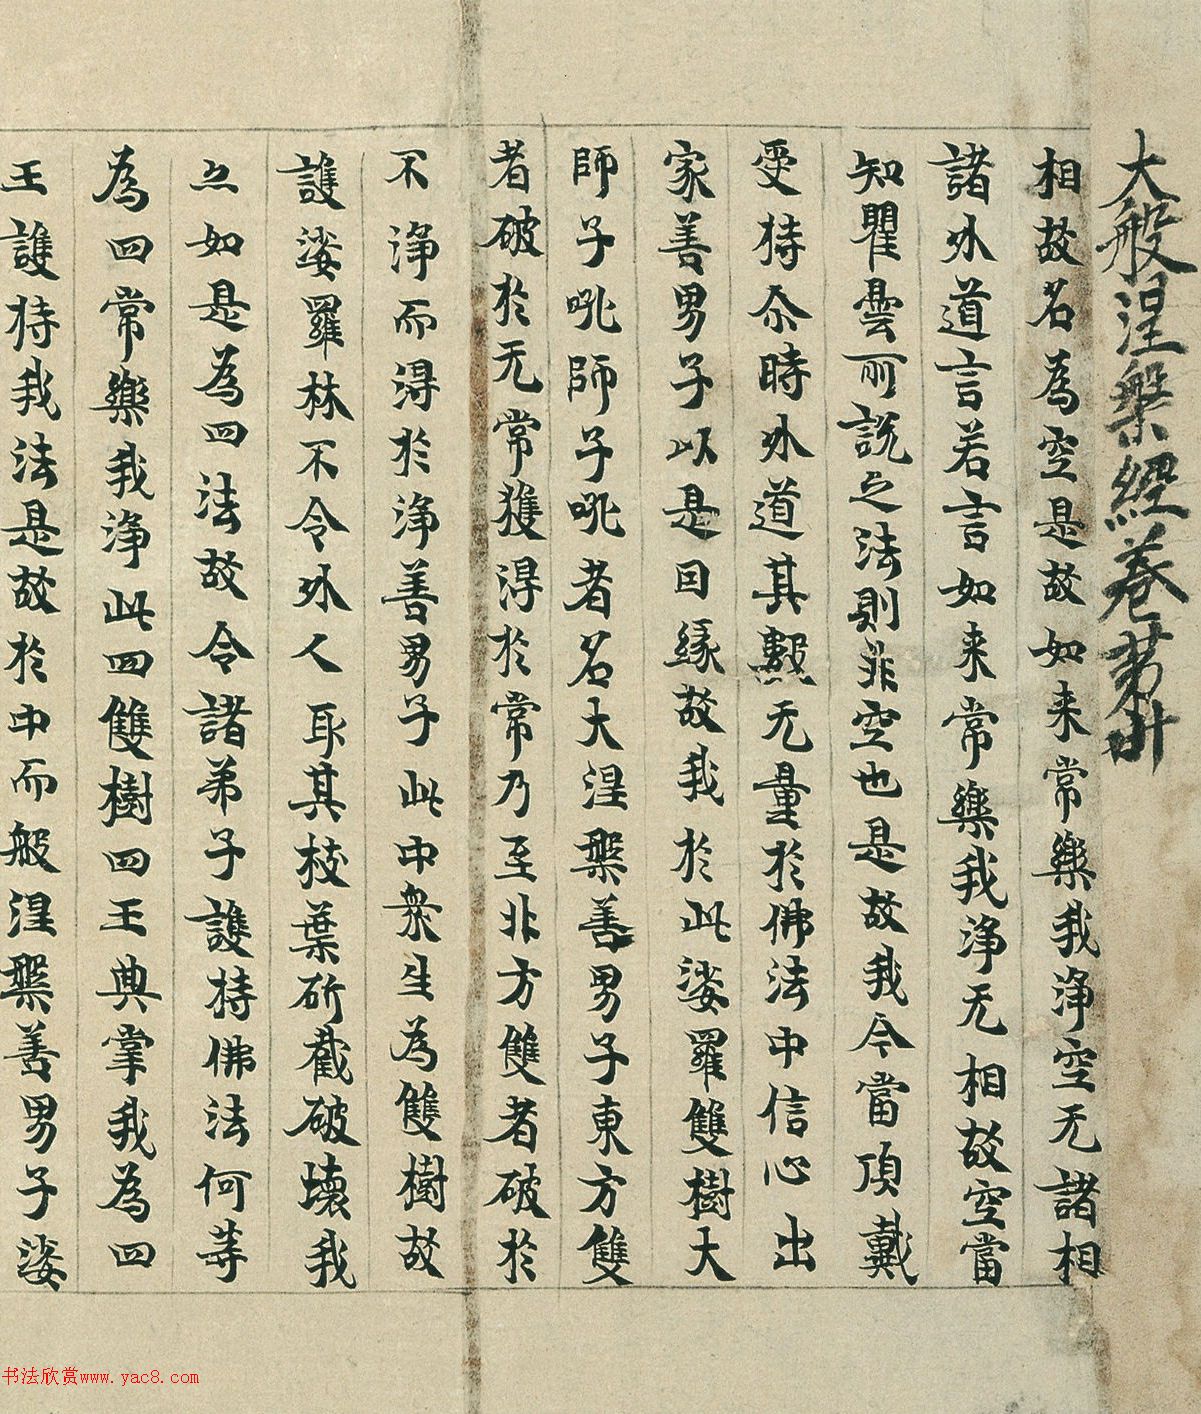 大般涅槃經卷第卅
相故名為空是故如来常樂我淨空无諸相
諸外道言若言如来常樂我淨无相故空當
知瞿曇所說之法則非空也是故我今當頂戴
受持尒時外道其數无量於佛法中信心出
家善男子以是因緣故我於此娑羅雙樹大
師子吼師子吼者名大涅槃善男子東方雙
者破於无常獲得於常乃至北方雙者破於
不淨而得於淨善男子此中衆生為雙樹故
護娑羅林不令外人取其枝葉斫截破壞我
亦如是為四法故令諸弟子護持佛法何等
為四常樂我淨此四雙樹四王典掌我為四
王護持我法是故於中而般涅槃善男子娑
书法欣赏www.yac8.com